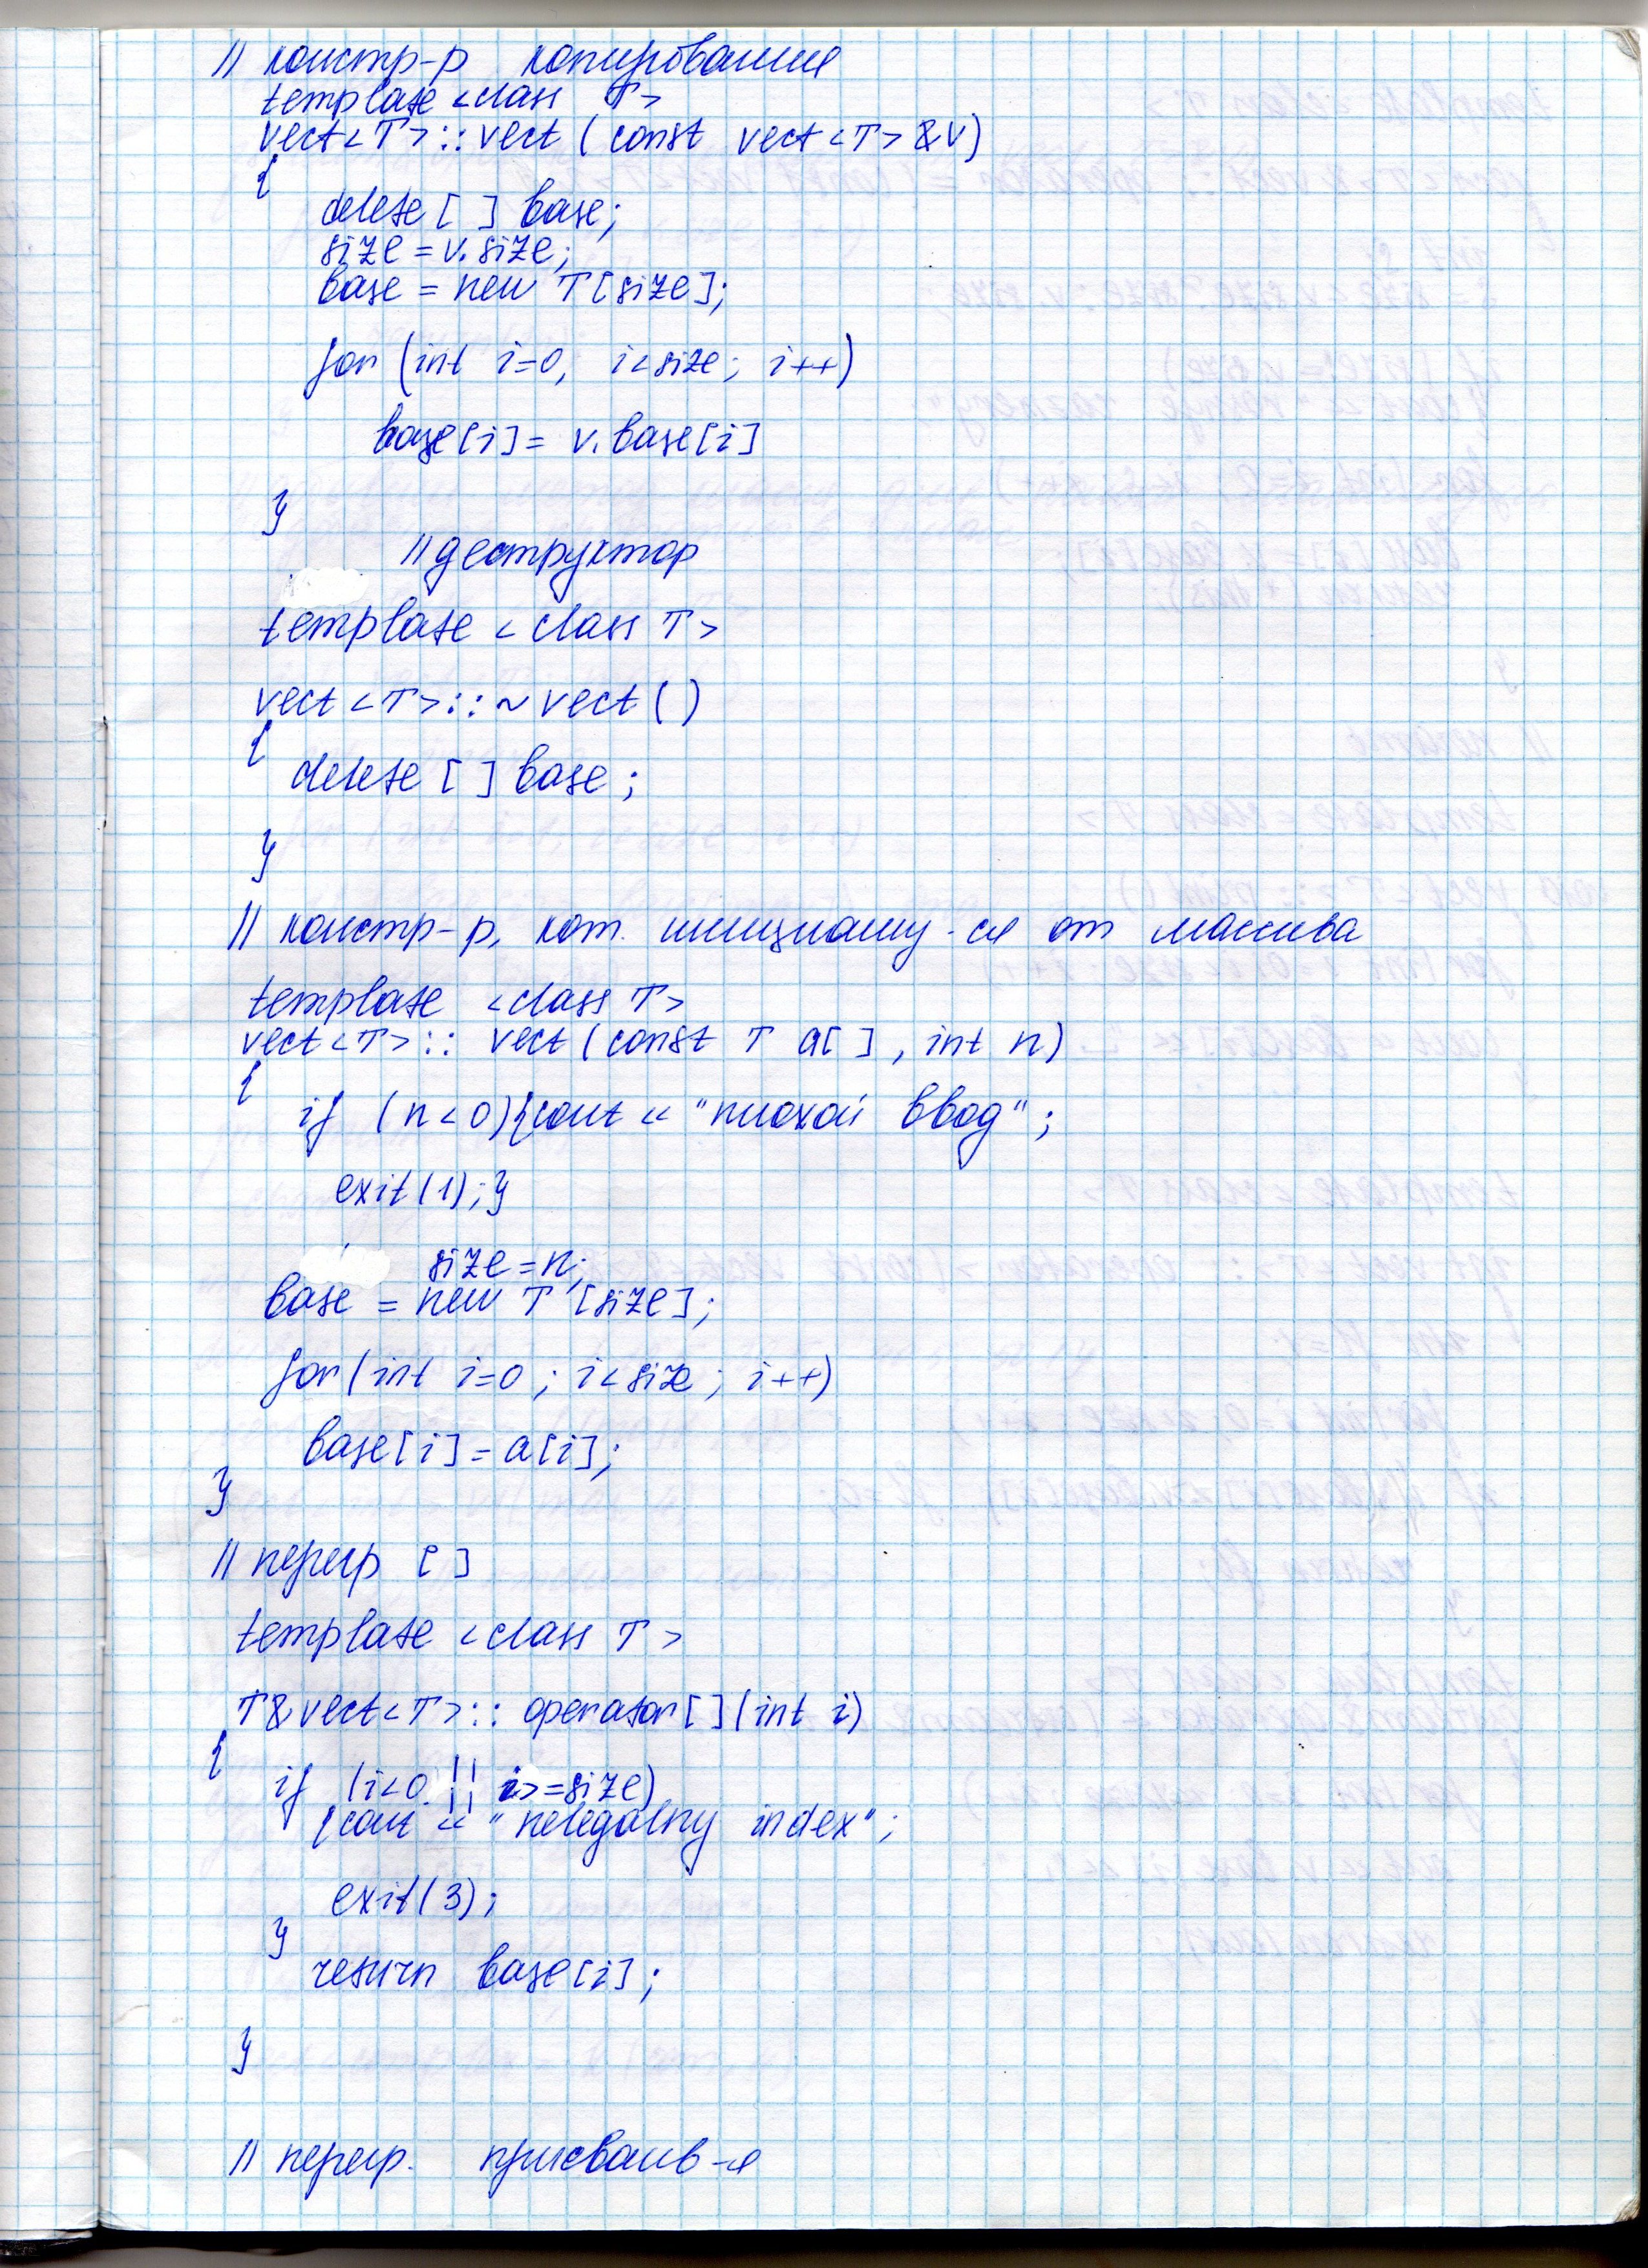 // констр-р копирования
template <class T>
vect<T>::vect (const vect<T> &v)
{
delete [ ] base;
size = v.size;
base = new T[size];
for (int i=0, i<size; i++)
base[i] = v.base[i]
}
//деструктор
template < class T>
vect <T>::~vect()
{
delete [ ] base;
}
// констр-р, кот. инициализ-ся от массива
template <class T>
vect<T>:: vect (const T a[ ], int n)
{
if (n<0){cout << "плохой ввод";
exit(1);}
size = n;
base = new T [size];
for (int i=0; i<size; i++)
base[i] = a[i];
}
// перегр [ ]
template <class T>
T& vect<T>:: operator[ ](int i)
{
if (i<0 || i>=size)
{cout << "nelegalny index";
exit(3);
}
return base[i];
}
// перегр. присваив-я